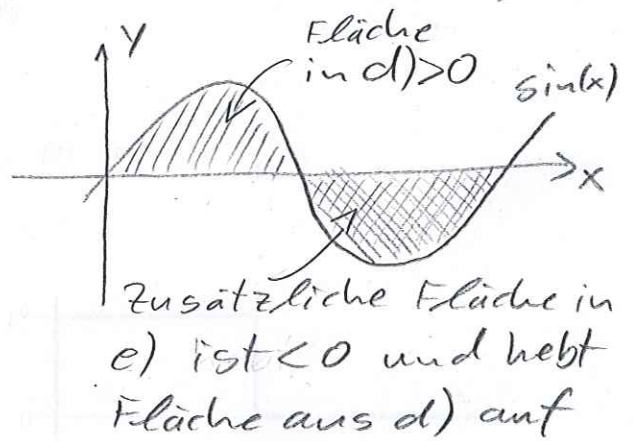 Y
Fläche
in d)>0
sin(x)
x
Zusätzliche Fläche in
e) ist <0 und hebt
Fläche aus d) auf